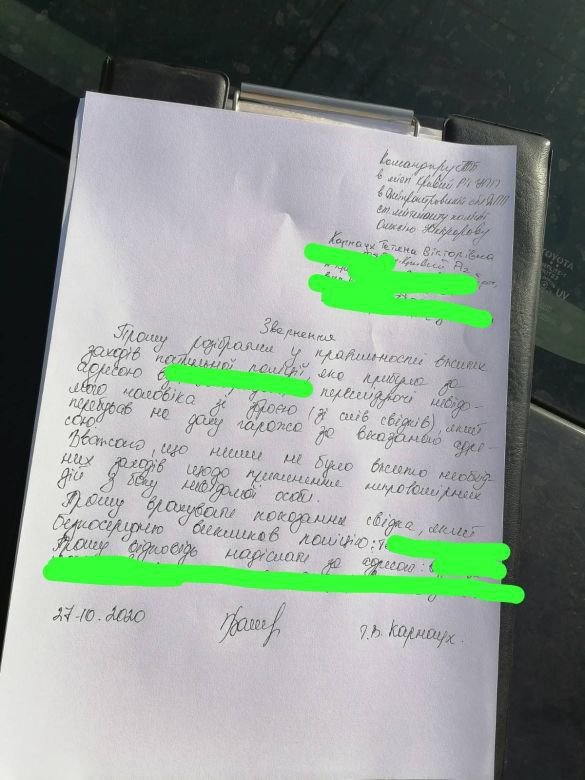 Командиру ТБ
в місті Кривий Ріг УПП
в Дніпропетровській обл ДПП
ст. лейтенанту поліції
Олексію
Карнаух Тетяна Вікторівна
Кривий Ріг
Звернення
Прошу розібратися у правильності вжитих
заходів патрульної поліції, яка прибула за
адресою переслідуючи невідо-
мого чоловіка зі зброєю (зі слів свідків), який
перебував на даху гаража за вказаною адре-
сою.
Вважаємо, що ними не було вжито необхід-
них заходів щодо припинення неправомірних
дій з боку невідомої особи.
Прошу врахувати показання свідка, який
безпосередньо викликав поліцію:
Прошу відповідь надіслати за адресою:
27.10.2020
Т.В. Карнаух.
TOYOTA
UV